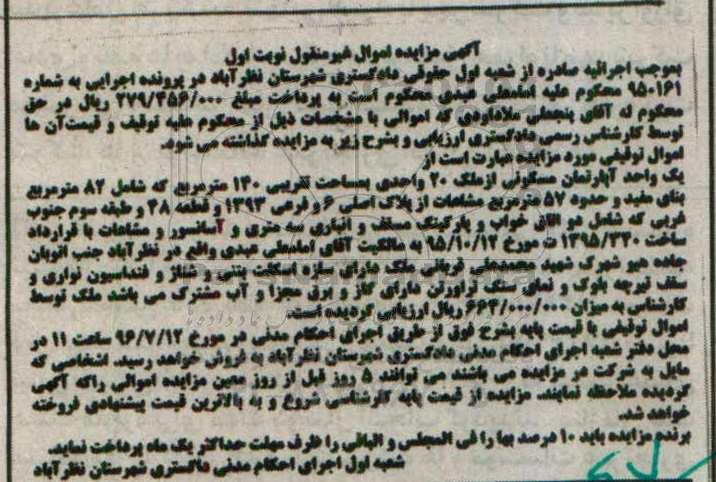 آگهی مزایده اموال غیرمنقول نوبت اول
بموجب اجرائیه صادره از شعبه اول حقوقی دادگستری شهرستان نظرآباد در پرونده اجرایی به شماره
۹۵۰۱۶۱ محکوم علیه امامعلی عبدی محکوم است به پرداخت مبلغ ۲۷۹/۳۵۶/۰۰۰ ریال در حق
محکوم له آقای پنجعلی ملاداودی که اموالی با مشخصات ذیل از محکوم علیه توقیف و قیمت آن ها
توسط کارشناس رسمی دادگستری ارزیابی و بشرح زیر به مزایده گذاشته می شود.
اموال توقیفی مورد مزایده عبارت است از
یک واحد آپارتمان مسکونی ازملک ۲۰ واحدی بمساحت تقریبی ۱۴۰ مترمربع که شامل ۸۲ مترمربع
بنای مفید و حدود ۵۷ مترمربع مشاعات از پلاک اصلی ۶ و فرعی ۱۳۹۳ و قطعه ۴۸ و طبقه سوم جنوب
غربی که شامل دو اتاق خواب و پارکینگ مسقف و انباری سه متری و آسانسور و مشاعات با قرارداد
ساخت ۱۳۹۵/۳۳۰ ت مورخ ۹۵/۱۰/۱۲ به مالکیت آقای امامعلی عبدی واقع در نظرآباد جنب اتوبان
جاده هیو شهرک شهید محمدعلی قربانی ملک دارای سازه اسکلت بتنی و شناژ و فنداسیون نواری و
سقف تیرچه بلوک و نمای سنگ تراورتن دارای گاز و برق مجزا و آب مشترک می باشد ملک توسط
کارشناس به میزان ۶۶۴/۰۰۰/۰۰۰ ریال ارزیابی گردیده است.
اموال توقیفی با قیمت پایه بشرح فوق از طریق اجرای احکام مدنی در مورخ ۹۶/۷/۱۲ ساعت ۱۱ در
محل دفتر شعبه اجرای احکام مدنی دادگستری شهرستان نظرآباد به فروش خواهد رسید. اشخاصی که
مایل به شرکت در مزایده می باشند می توانند ۵ روز قبل از روز معین مزایده اموالی راکه آگهی
گردیده ملاحظه نمایند. مزایده از قیمت پایه کارشناسی شروع و به بالاترین قیمت پیشنهادی فروخته
خواهد شد.
برنده مزایده باید ۱۰ درصد بها را فی المجلس و الباقی را ظرف مهلت حداکثر یک ماه پرداخت نماید.
شعبه اول اجرای احکام مدنی دادگستری شهرستان نظرآباد